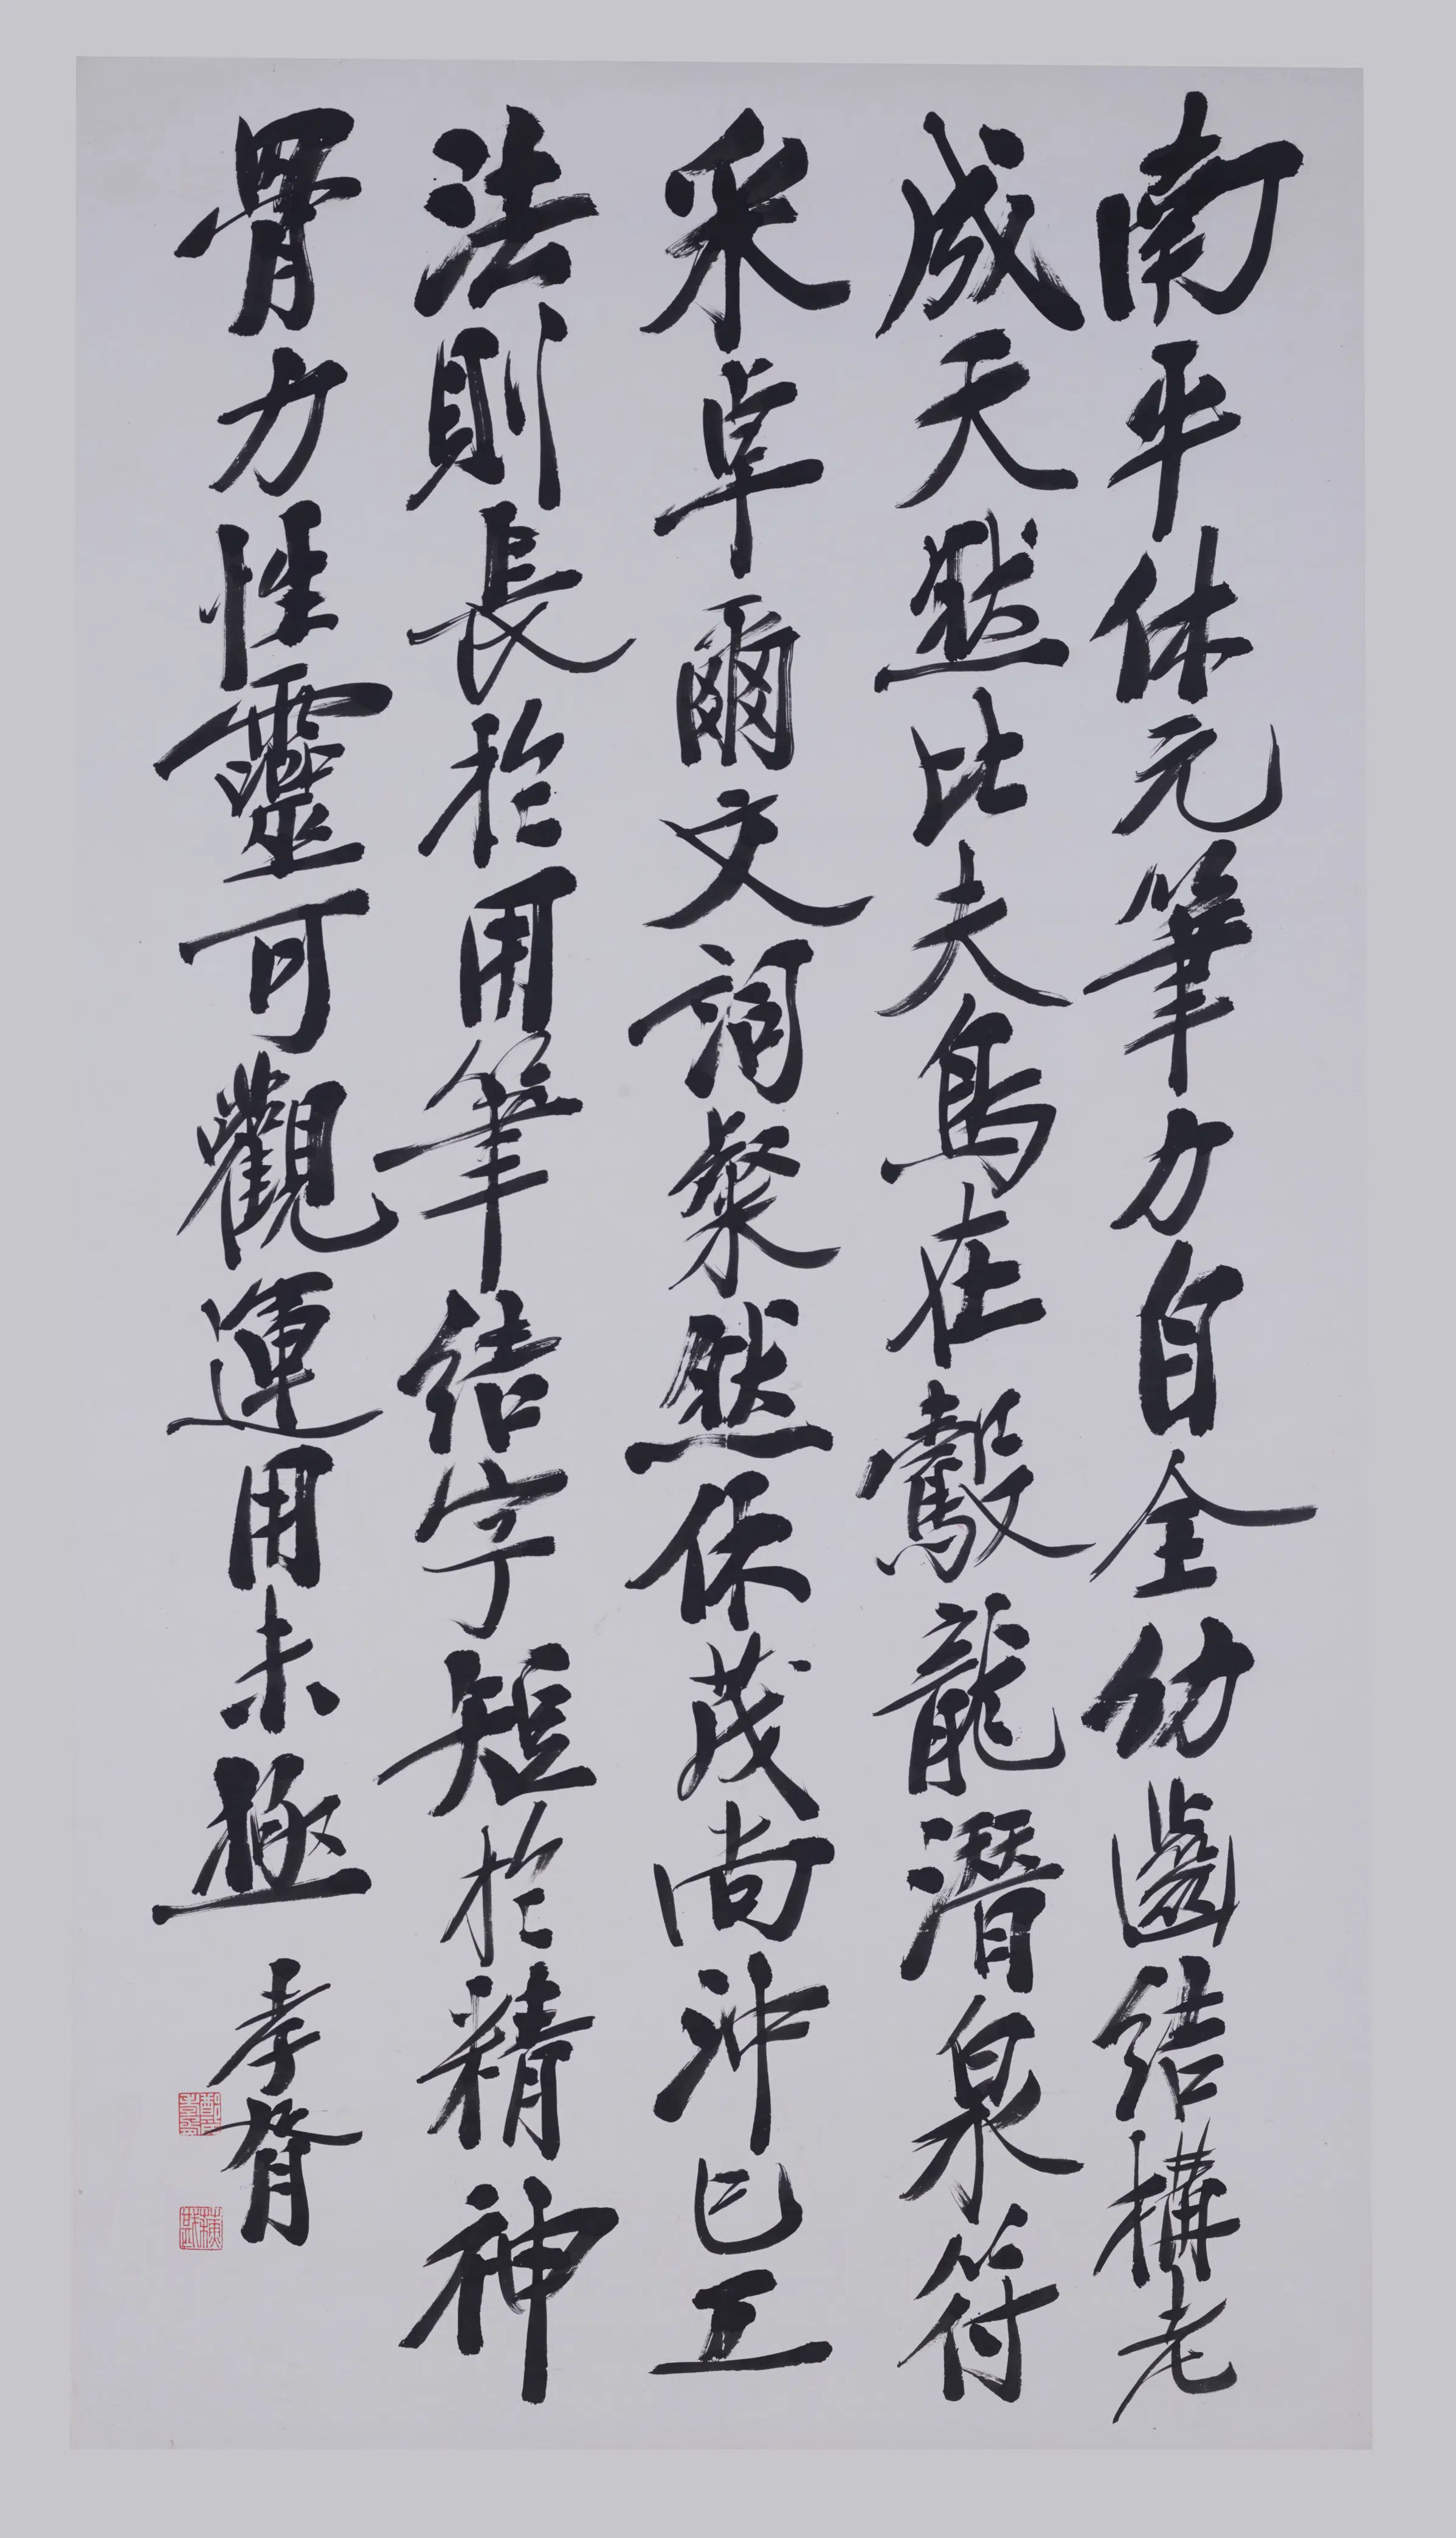 南平休元筆力自全幼齒結構老
成天然比夫鳥在鷇龍潛泉符
采卓爾文詞粲然休茂尚沖已工
法則長於用筆結字短於精神
骨力性靈可觀運用未極
孝胥